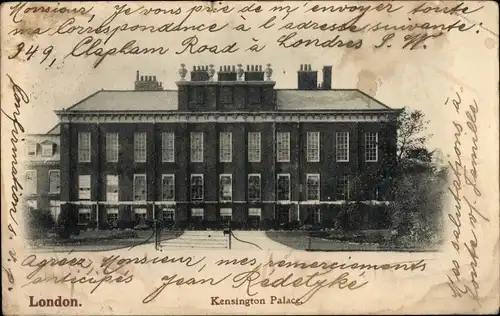 Monsieur, Je vous prie de m'envoyer toute
ma Correspondance à l'adresse suivante:
349, Clapham Road à Londres S. W.
Confirmation s.v.p.
Mes salutations à
toute la Famille.
Agréez Monsieur, mes remerciements
anticipés Jean
London.
Kensington Palace.